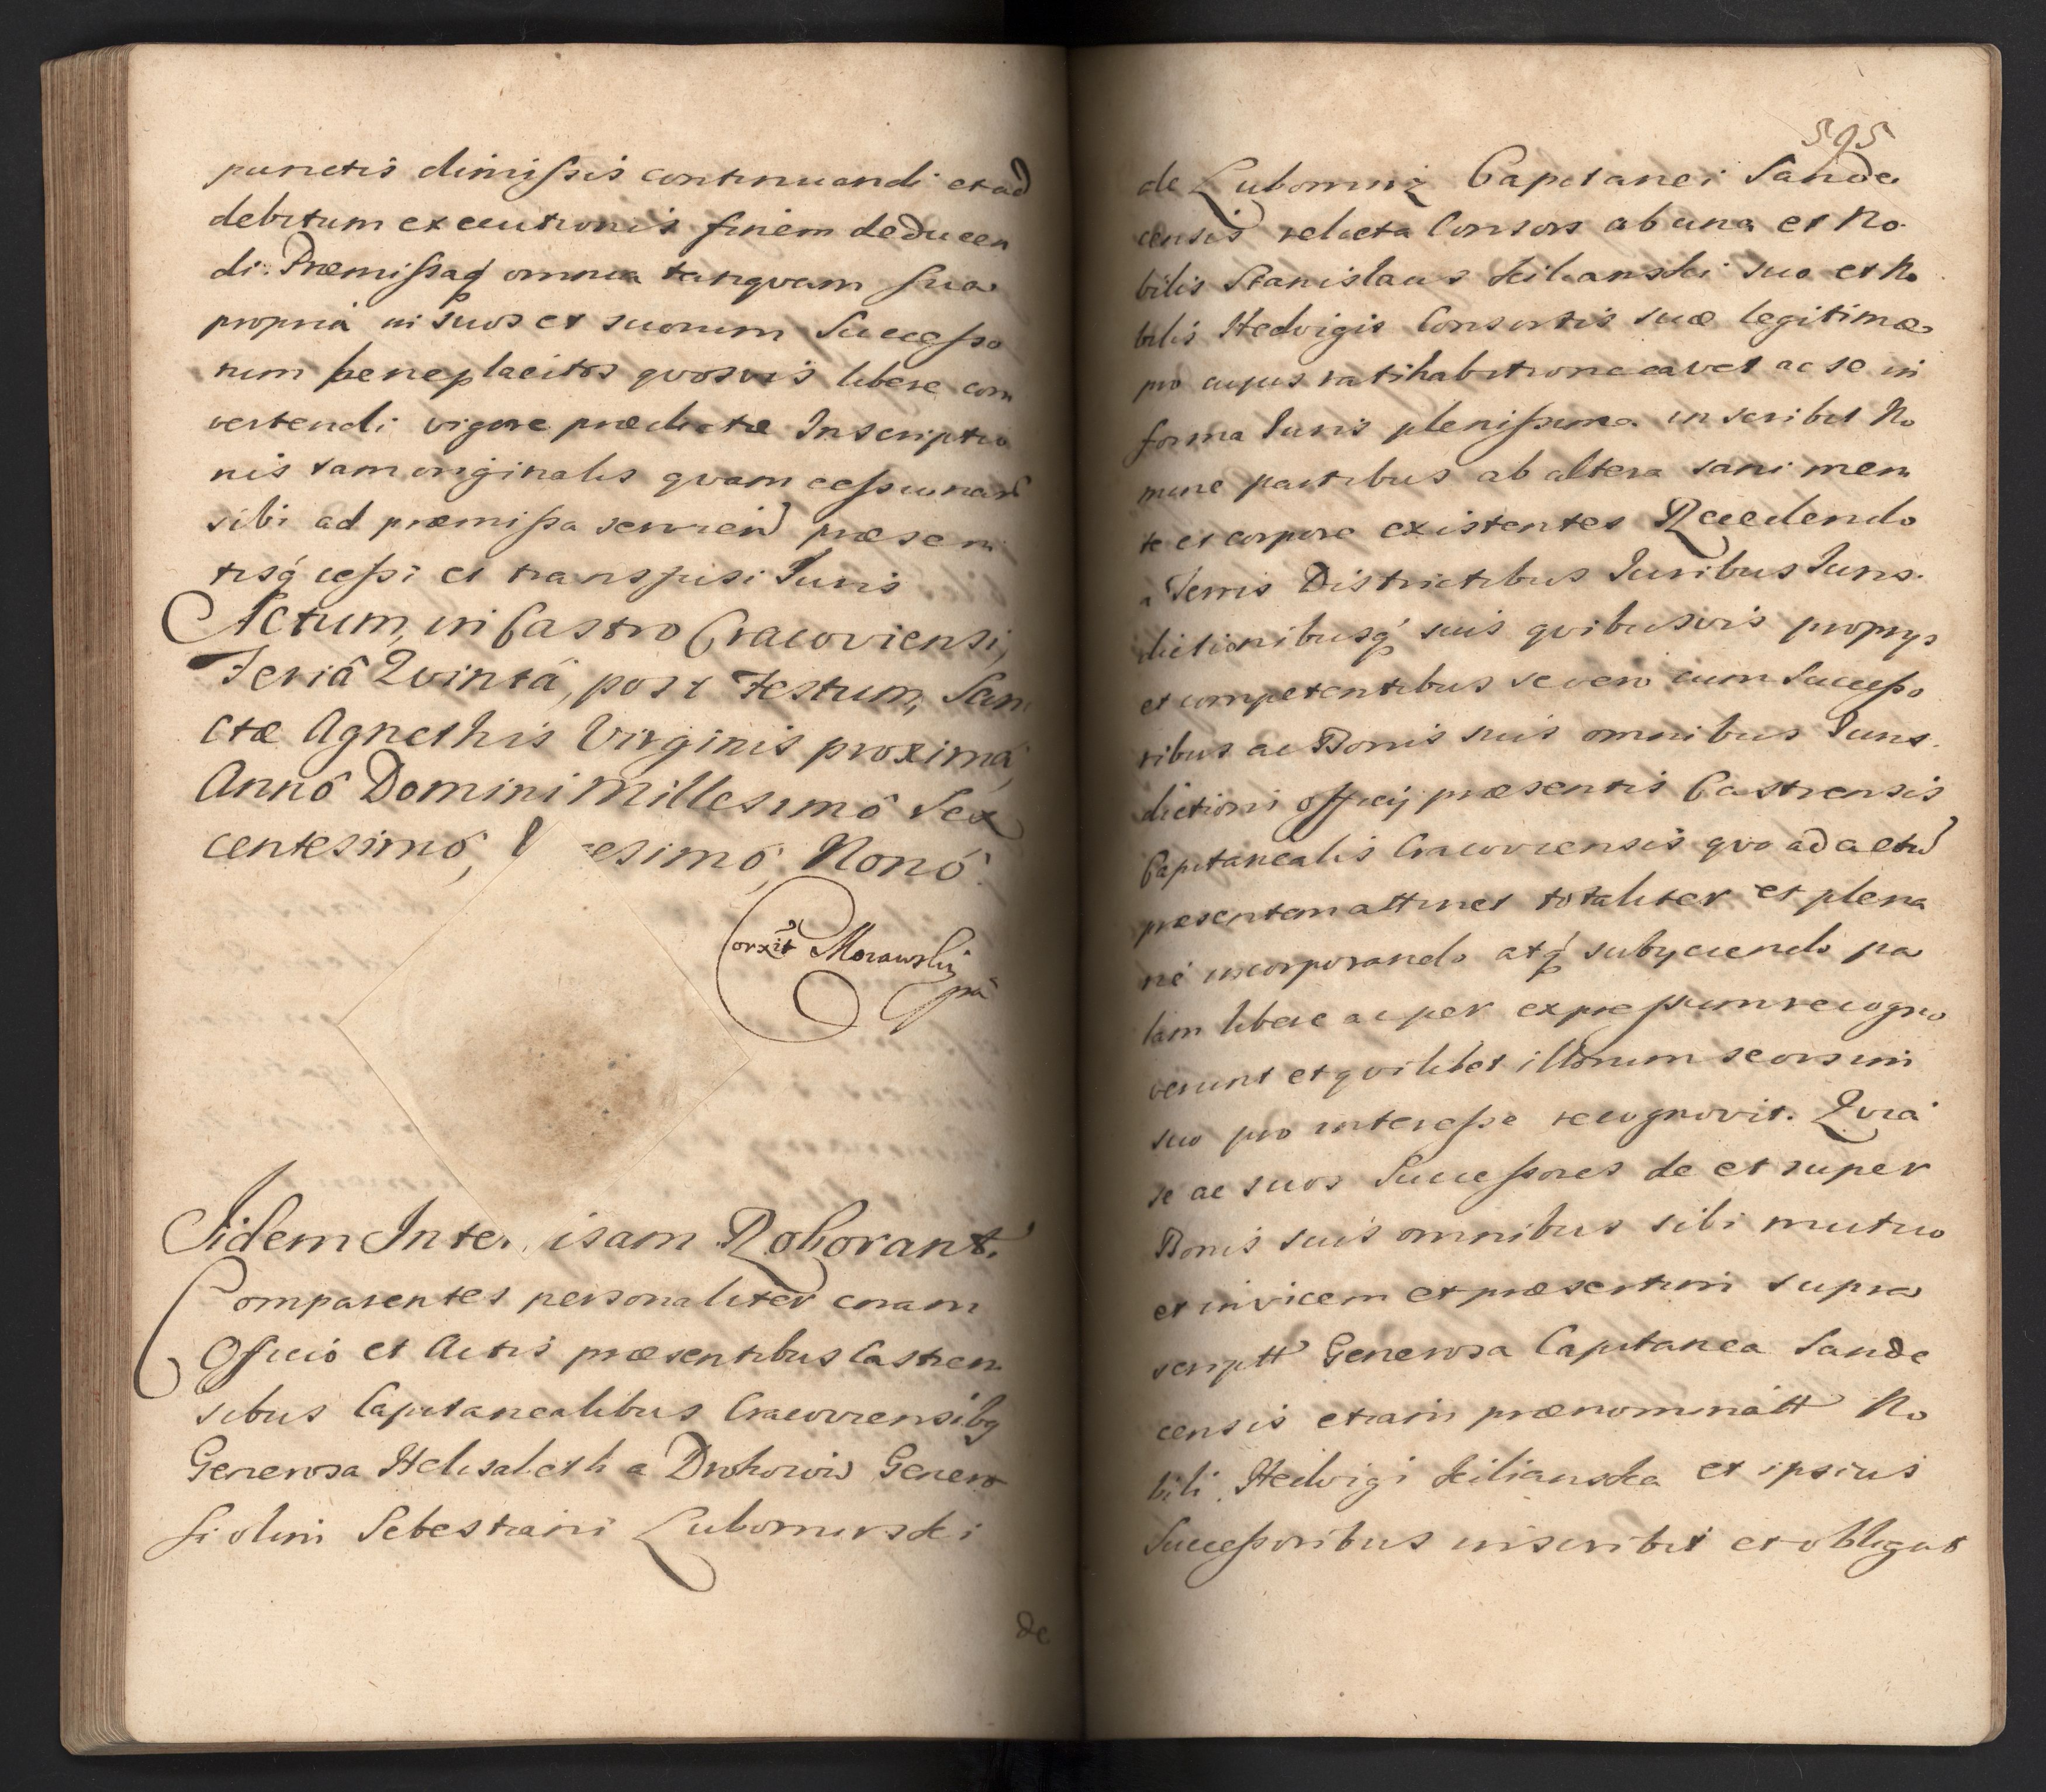 punctis dimissis continuandi et ad
debitum executionis finem deducen
di. Præmissaq omnia tanquam sua
propria in suos et suorum Successo
rum beneplacitos quosvis libere con
vertendi vigore prædictæ Inscriptio
nis tam originalis quam cessionar
sibi ad præmissa servien præsen
tisq cessi et transfusi Juris
Actum, in Castro Cracoviensi,
Feriâ Quintâ, post Festum, San
ctæ Agnethis Virginis proximâ,
Annô Domini Millesimô Sex
centesimô, V esimô, Nonô.
Corxit Morawski
pa
Iidem Inter isam Roborant.
Comparentes personaliter coram
Officio et Actis præsentibus Castren
sibus Capitanealibus Cracoviensibq
Generosa Helisabeth a Drohowio Genero
si olim Sebestiani Lubomirski
de
595
de Lubomirz Capitanei Sande
censis relicta Consors ab una et No
bilis Stanislaus Kilianski suo et No
bilis Hedvigis Consortis suæ legitimæ
pro cujus ratihabitione cavet ac se in
forma Juris plenissima inscribit No
mine partibus ab altera sani men
te et corpore existentes Recedendo
a Terris Districtibus Juribus Juris
dictionibusq suis quibusvis proprys
et competentibus se vero cum Successo
ribus ac Bonis suis omnibus Juris
dictioni officij præsentis Castrensis
Capitanealis Cracoviensis quo ad actu
præsentem attinet totaliter et plena
rie incorporando atq subyciendo pa
lam libere ac per expressum recogno
verunt et quilibet illorum seorsim
suo pro interesse recognovit. Quia
se ac suos Successores de et super
Bonis suis omnibus sibi mutuo
et invicem et præsertim supra
scriptt Generosa Capitanea Sande
censis etiam prænominatt No
bili Hedvigi Kilianska et ipsius
Successoribus inscribit et obligat